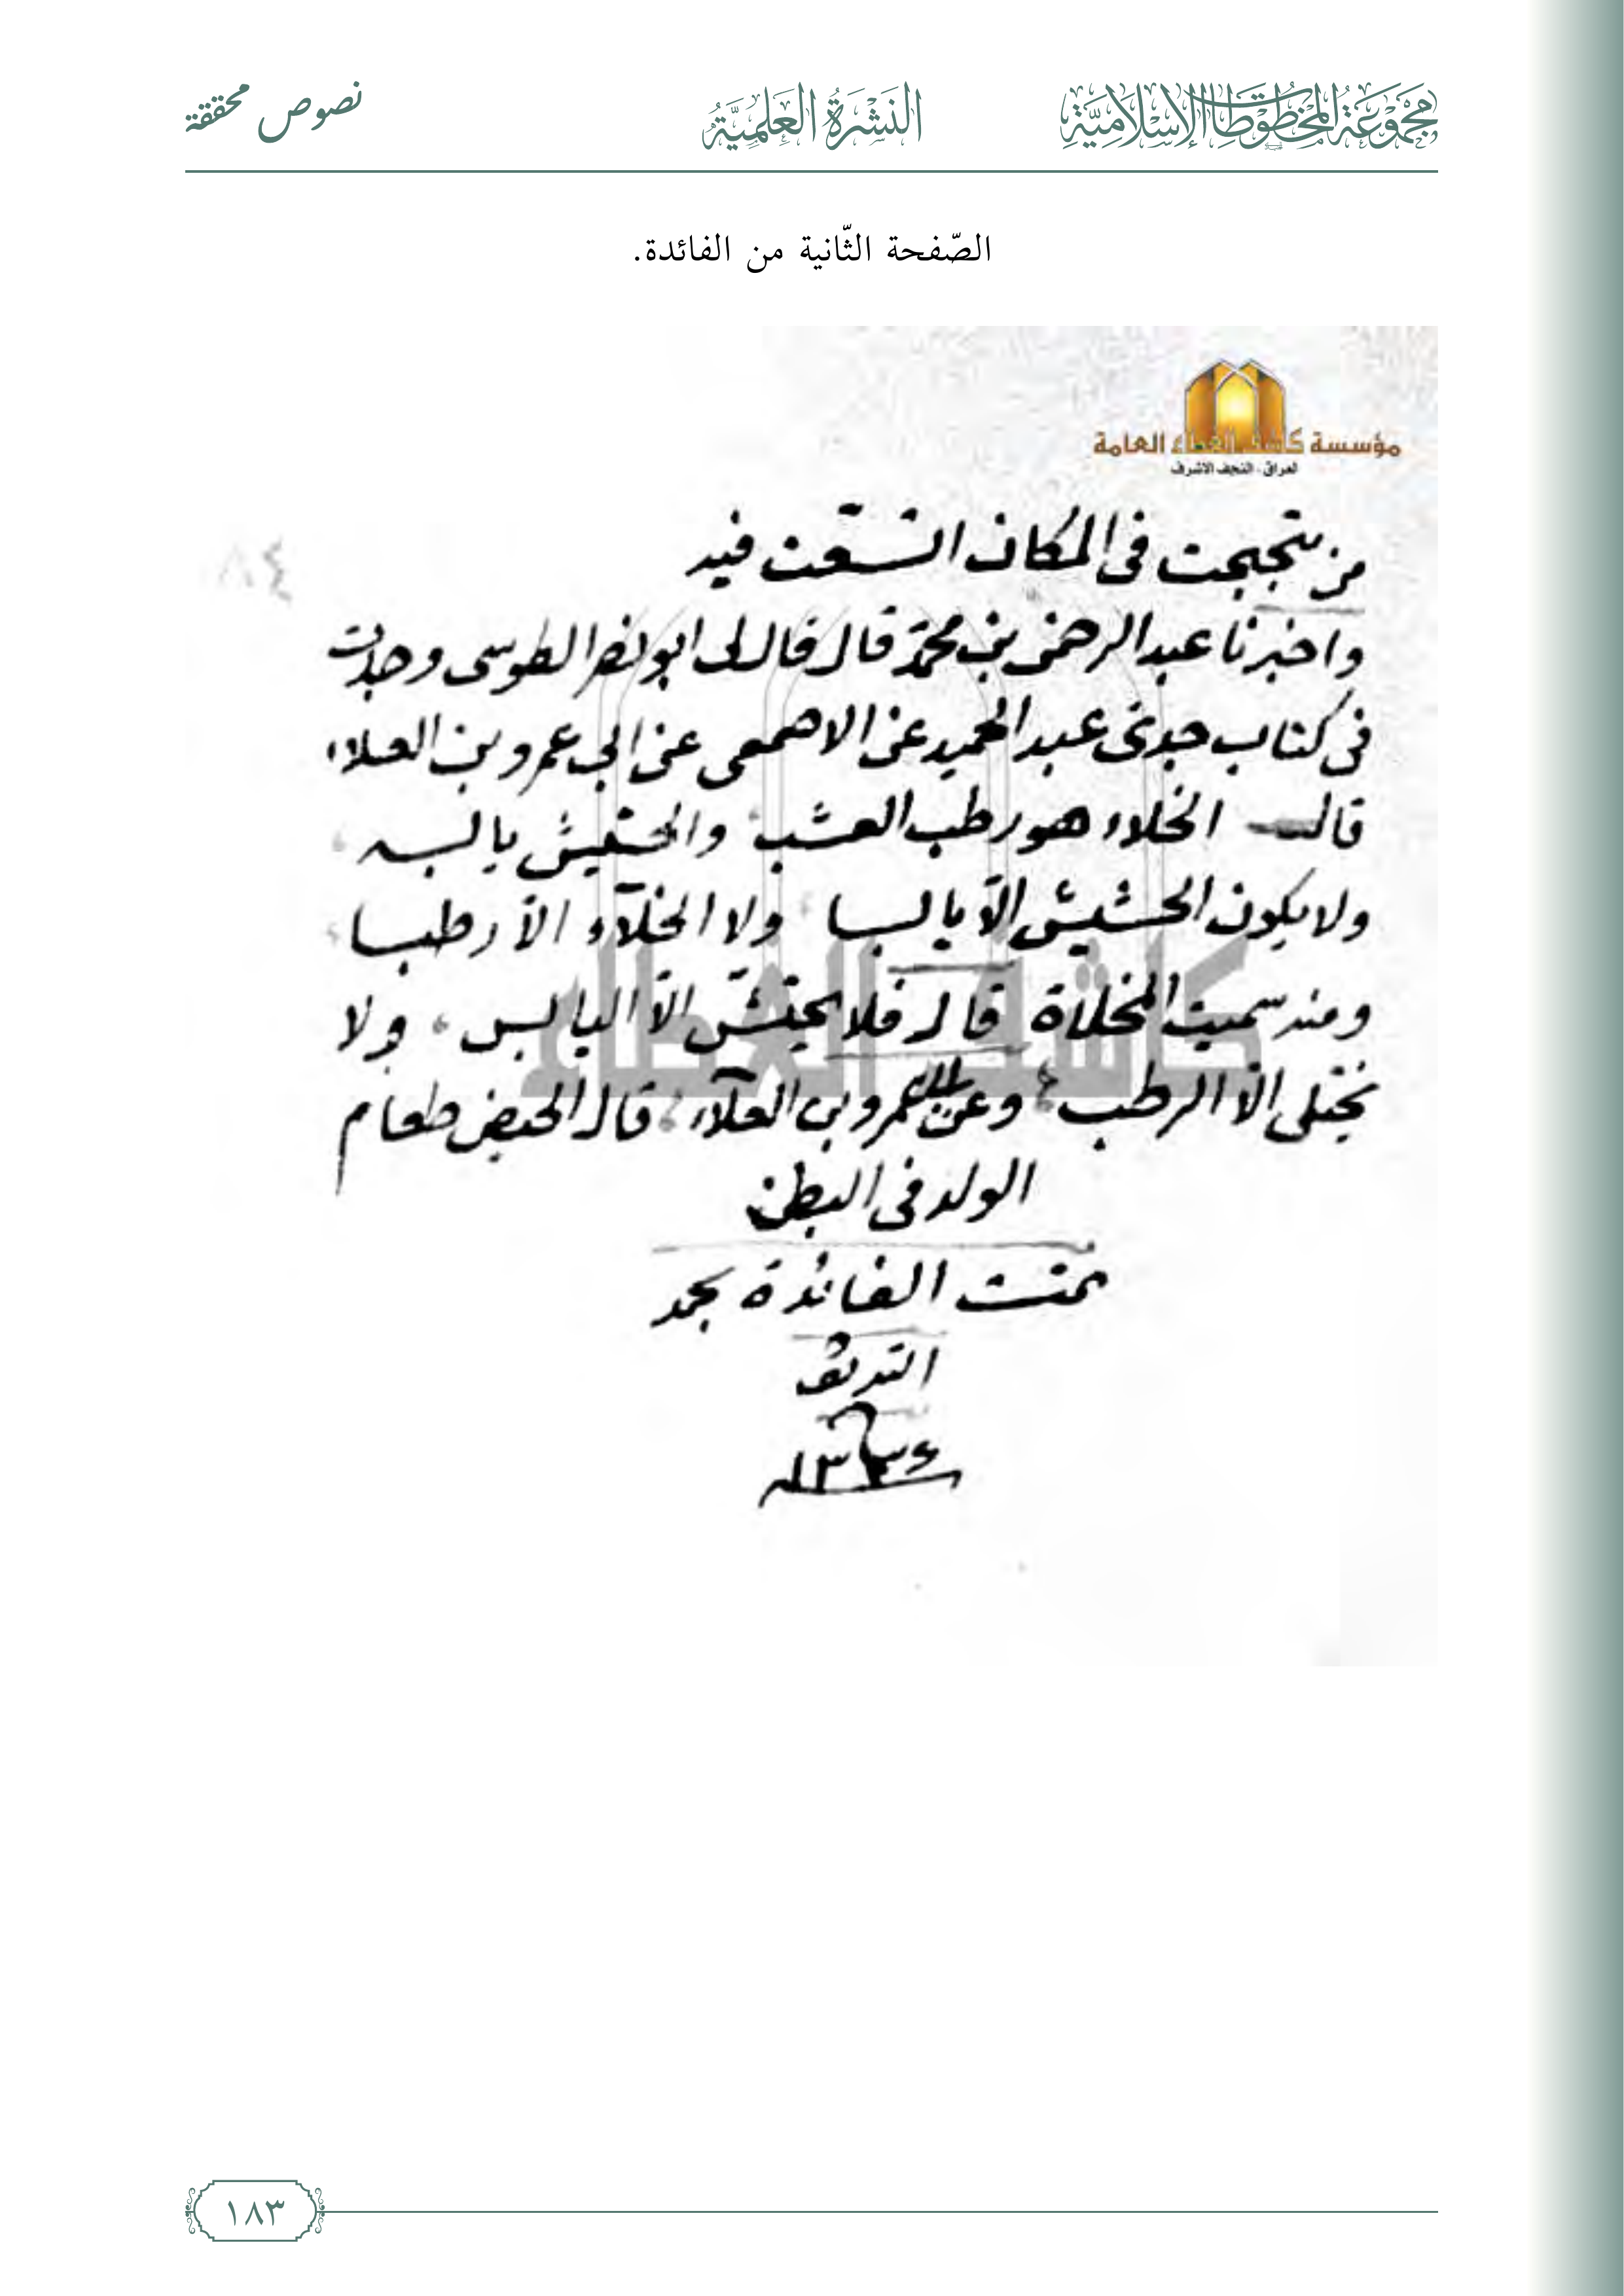 مجموعة المخطوطات الإسلامية
النشرة العلمية
نصوص محققة
الصّفحة الثّانية من الفائدة.
مؤسسة كاشف الغطاء العامة
العراق - النجف الاشرف
٨٤
من في المكان فيه
واخبرنا عبد الرحمن بن محمد قال قال لى ابو نصر الطوسى وجدت
فى كتاب جدى عبد الحميد عن الاصمعى عن ابي عمرو بن العلاء
قال الخلاء هو رطب العشب والحشيش يابسه
ولا يكون الحشيش الّا يابسا ولا الخلآء الّا رطبا
ومنه سميت المخلاة قال فلا يحتشّ الّا اليابس، ولا
يختلى الّا الرطب وعن عمرو بن العلآء قال الحيض طعام
الولد فى البطن
تمت الفائدة بحمد
الله
كاشف الغطاء
١٨٣